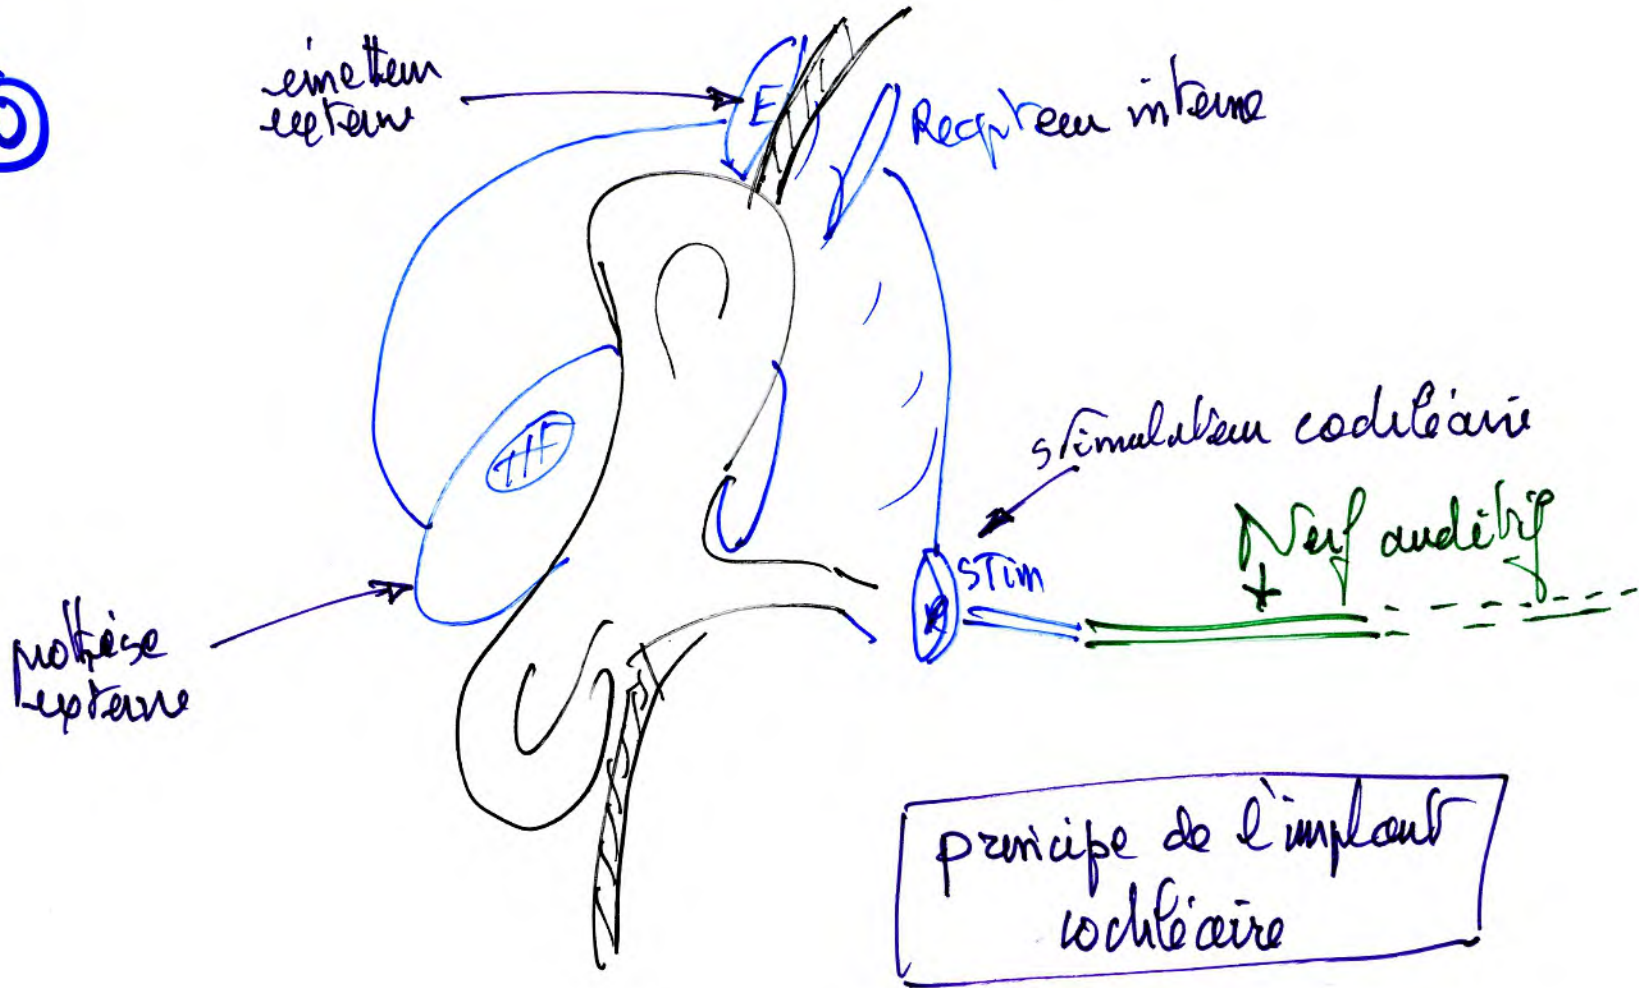 émetteur
externe
E
Recepteur interne
stimulateur cochléaire
Nerf auditif
+
STIM
prothèse
externe
principe de l'implant
cochléaire